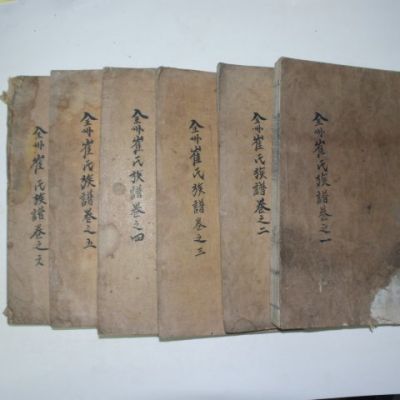 全州崔氏族譜卷之一
全州崔氏族譜卷之二
全州崔氏族譜卷之三
全州崔氏族譜卷之四
全州崔氏族譜卷之五
全州崔氏族譜卷之六